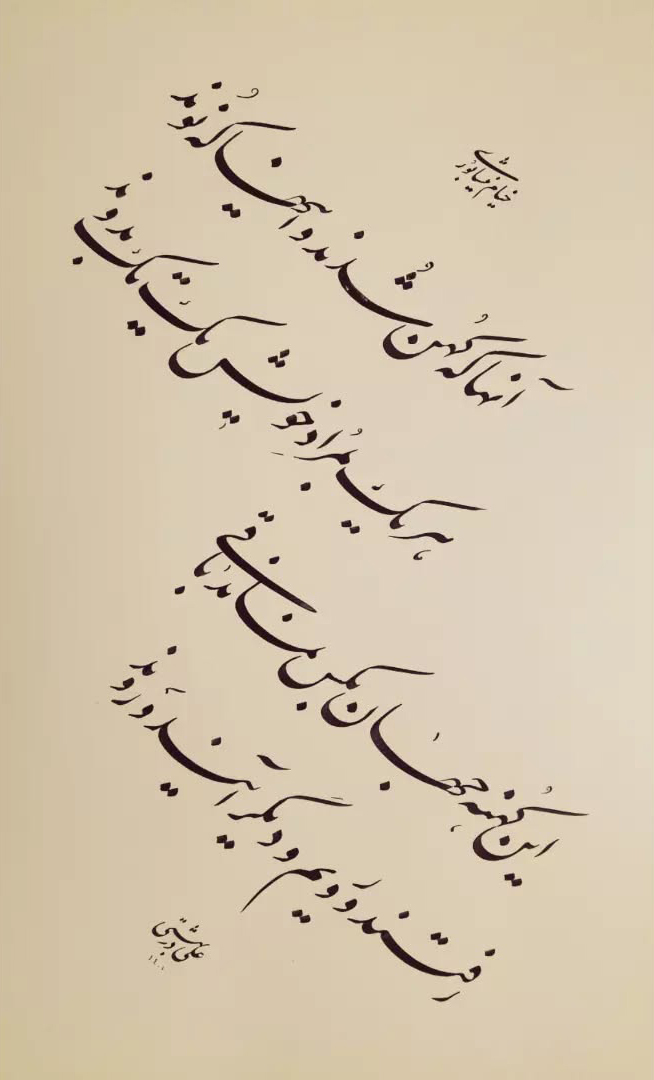 خیام نیشابوری
آنها که کهن شدند و اینها که نوند
هر یک بمراد خویش یک تک بدوند
این کهنه جهان بکس نماند باقی
رفتند و رویم و دیگر آیند و روند
علی
۱۴۰۱